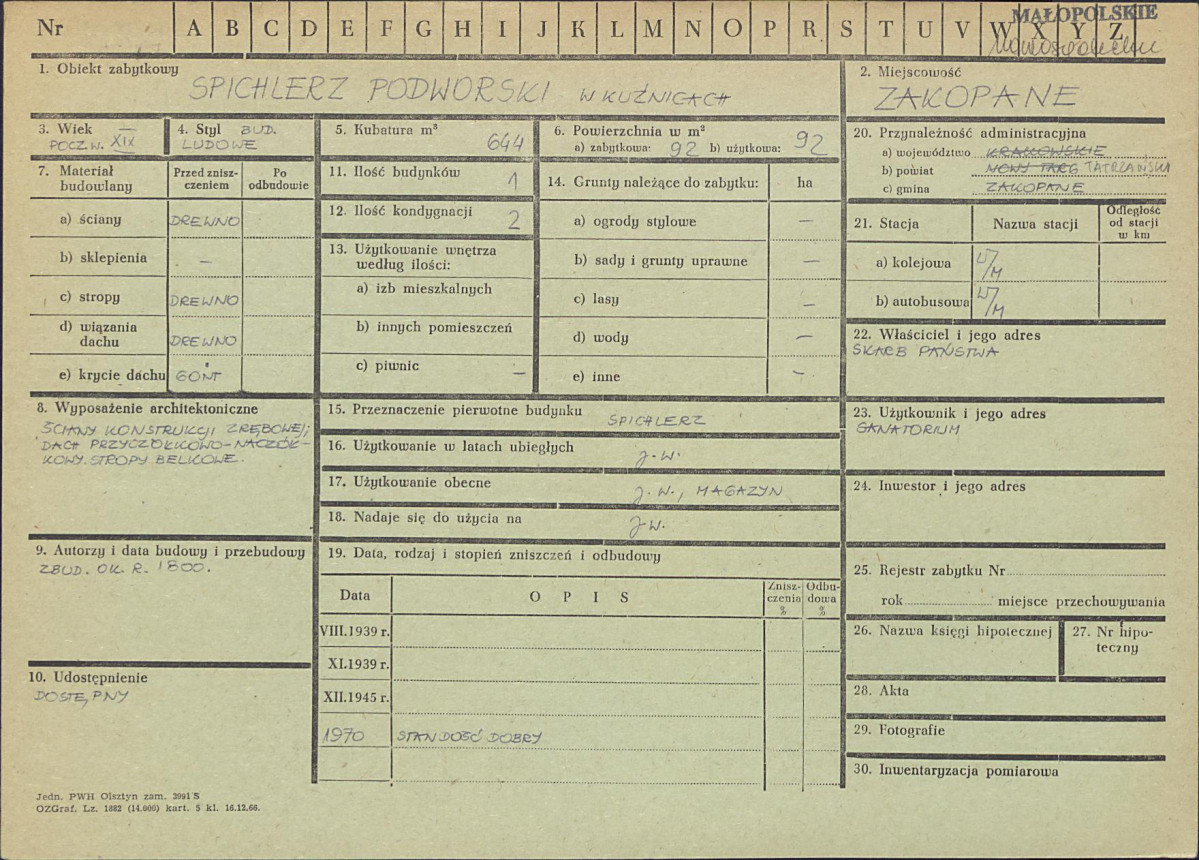 Nr A B C D E F G H I J K L M N O P R S T U V W X Y Z
MAŁOPOLSKIE
1. Obiekt zabytkowy
SPICHLERZ PODWORSKI W KUŹNICACH
2. Miejscowość
ZAKOPANE
3. Wiek
POCZ. W. XIX
4. Styl BUD.
LUDOWE
5. Kubatura m³
644
6. Powierzchnia w m²
a) zabytkowa: 92 b) użytkowa: 92
7. Materiał
budowlany
Przed znisz-
czeniem
Po
odbudowie
a) ściany DREWNO
b) sklepienia —
c) stropy DREWNO
d) wiązania
dachu DREWNO
e) krycie dachu GONT
8. Wyposażenie architektoniczne
ŚCIANY KONSTRUKCJI ZRĘBOWEJ;
DACH PRZYCZÓŁKOWO-NACZÓŁ-
KOWY. STROPY BELKOWE.
9. Autorzy i data budowy i przebudowy
ZBUD. OK. R. 1800.
10. Udostępnienie
DOSTĘPNY
11. Ilość budynków 1
12. Ilość kondygnacji 2
13. Użytkowanie wnętrza
według ilości:
a) izb mieszkalnych
b) innych pomieszczeń
c) piwnic —
14. Grunty należące do zabytku: ha
a) ogrody stylowe —
b) sady i grunty uprawne —
c) lasy —
d) wody —
e) inne —
15. Przeznaczenie pierwotne budynku
SPICHLERZ
16. Użytkowanie w latach ubiegłych
J.W.
17. Użytkowanie obecne
J.W., MAGAZYN
18. Nadaje się do użycia na
J.W.
19. Data, rodzaj i stopień zniszczeń i odbudowy
Data O P I S
Znisz-
czenia
%
Odbu-
dowa
%
VIII.1939 r.
XI.1939 r.
XII.1945 r.
1970 STAN DOŚĆ DOBRY
20. Przynależność administracyjna
a) województwo KRAKOWSKIE
b) powiat NOWY TARG TATRZAŃSKI
c) gmina ZAKOPANE
21. Stacja Nazwa stacji
Odległość
od stacji
w km
a) kolejowa W/M
b) autobusowa W/M
22. Właściciel i jego adres
SKARB PAŃSTWA
23. Użytkownik i jego adres
SANATORIUM
24. Inwestor i jego adres
25. Rejestr zabytku Nr
rok miejsce przechowywania
26. Nazwa księgi hipotecznej
27. Nr hipo-
teczny
28. Akta
29. Fotografie
30. Inwentaryzacja pomiarowa
Jedn. PWH Olsztyn zam. 3991 S
OZGraf. Lz. 1882 (14.000) kart. 5 kl. 16.12.66.